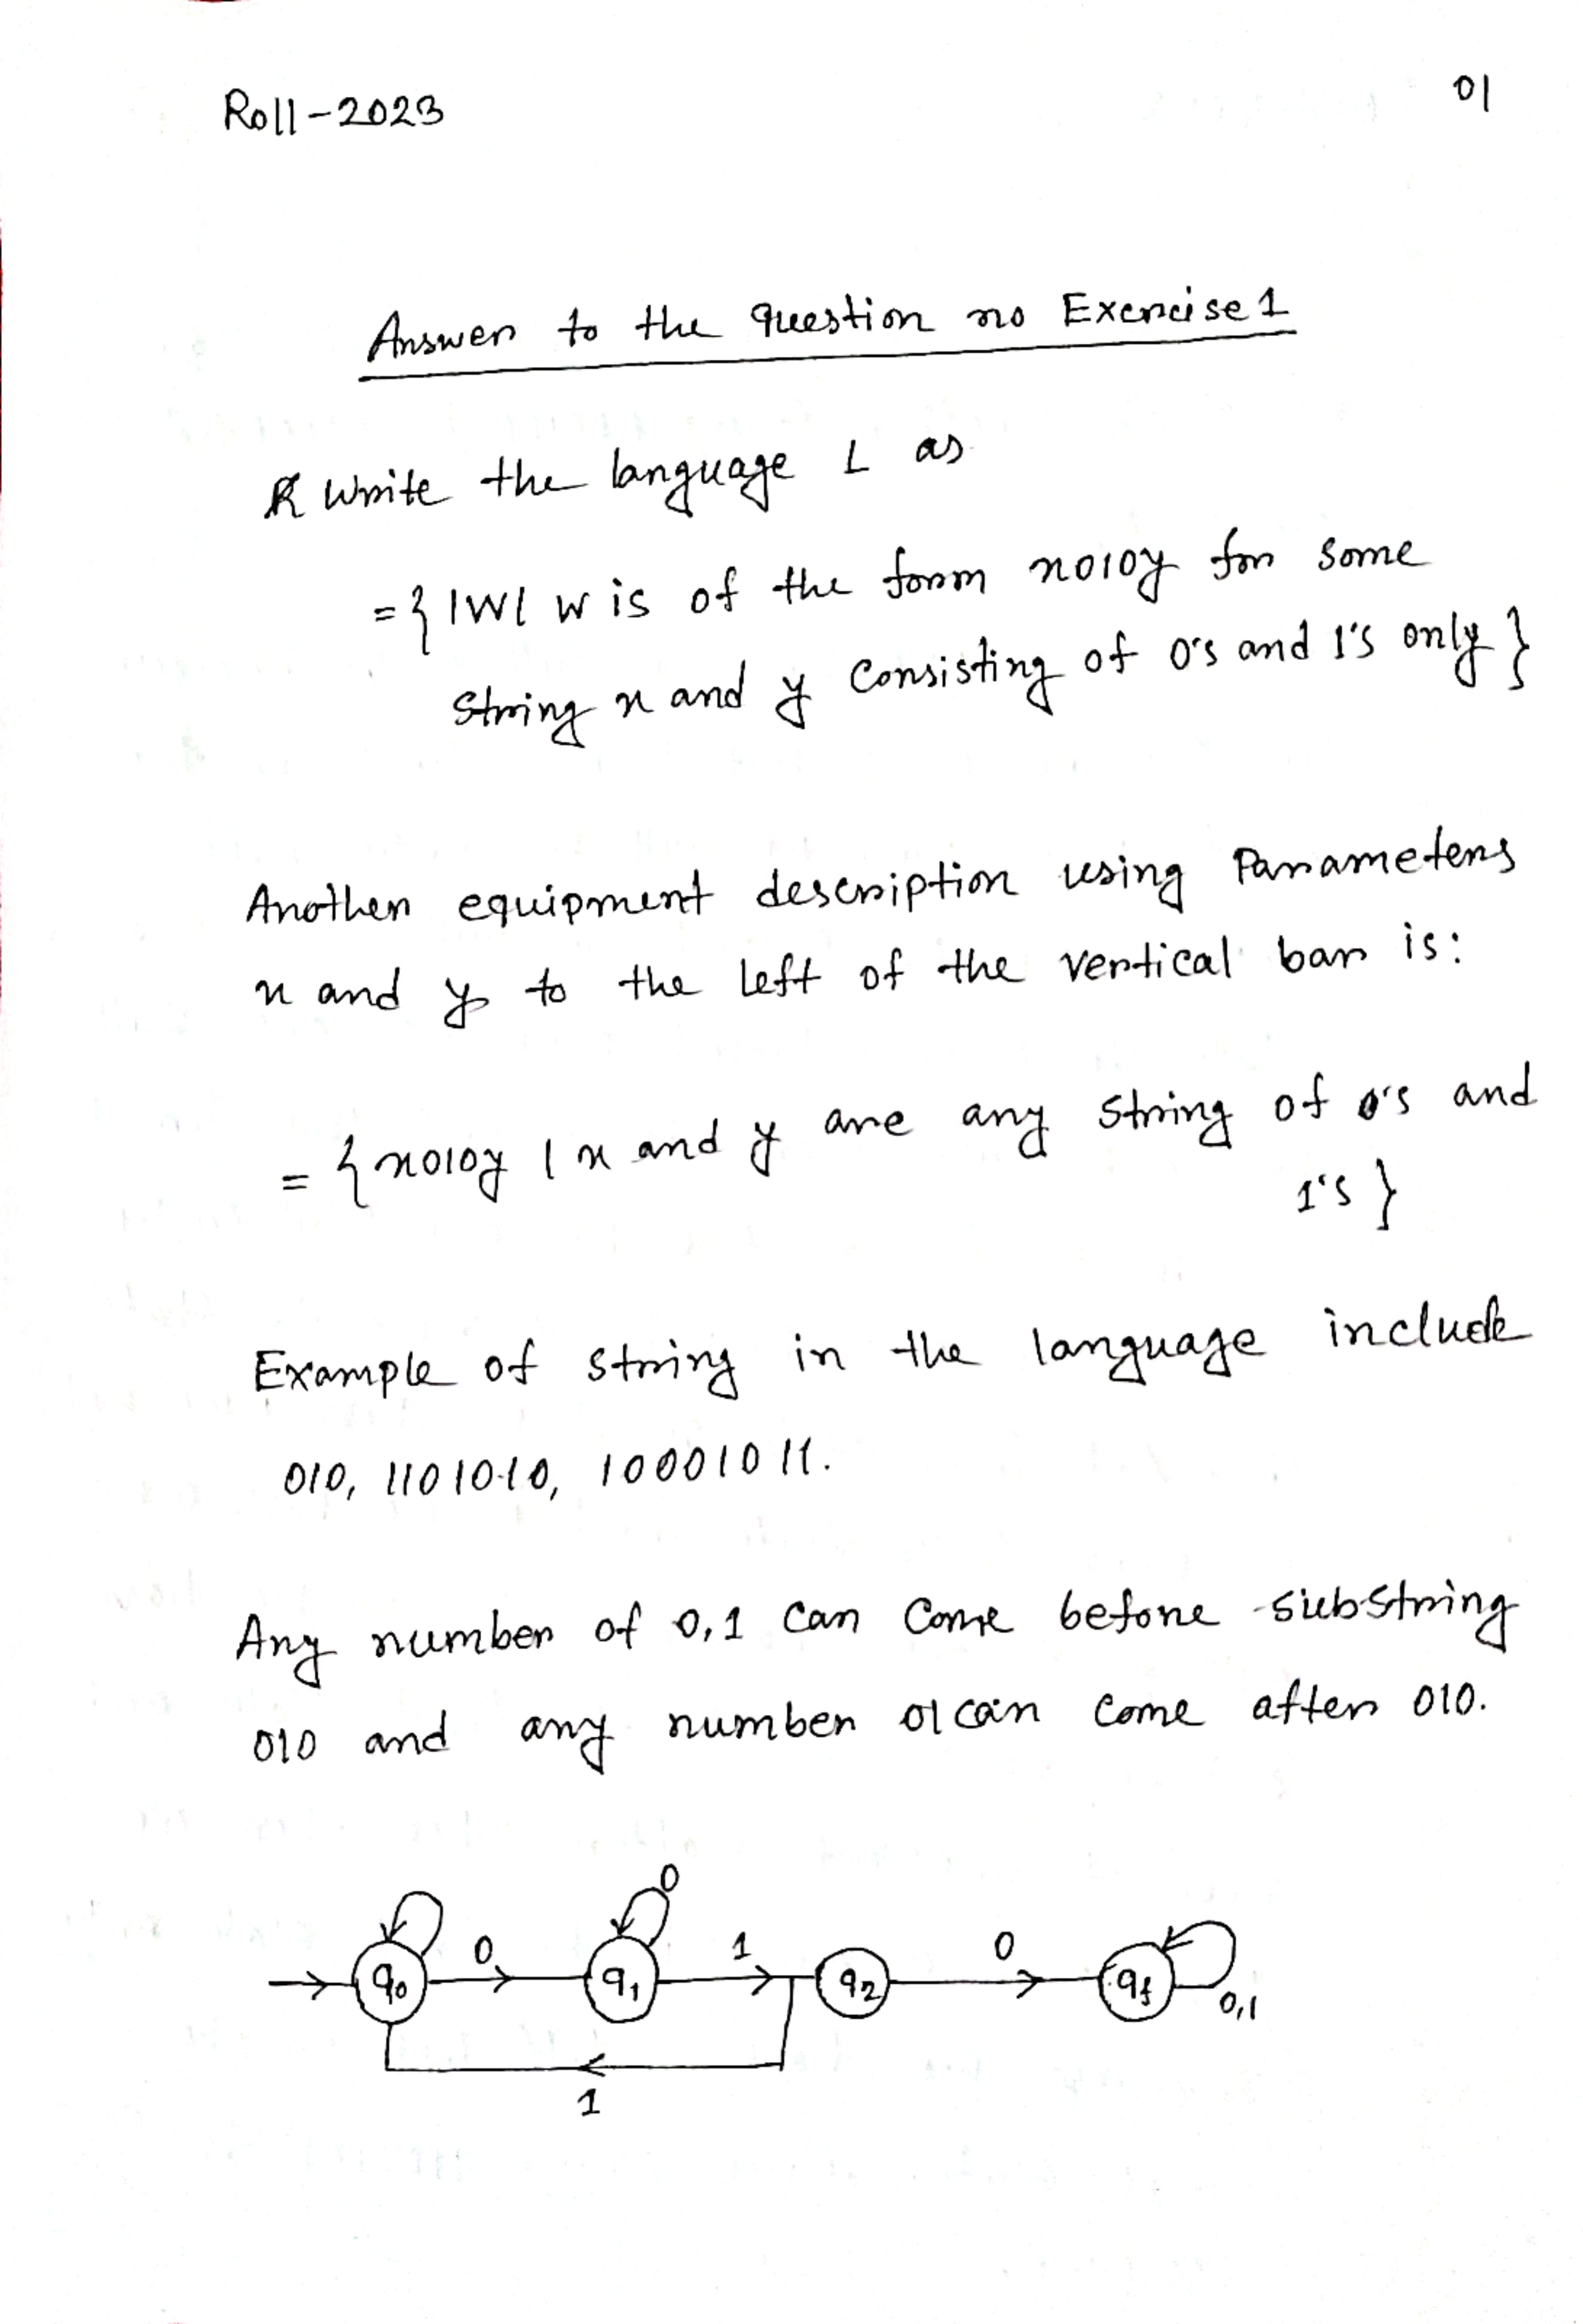 Roll-2023
01
Answer to the question no Exercise 1
Write the language L as
= { |W| w is of the form x010y for some
string x and y consisting of 0's and 1's only }
Another equipment description using Parameters
x and y to the left of the vertical bar is:
= { x010y | x and y are any string of 0's and
1's }
Example of string in the language include
010, 1101010, 10001011.
Any number of 0,1 can come before substring
010 and any number 01 can come after 010.
0
0 1 0
q0 q1 q2 qf
0,1
1